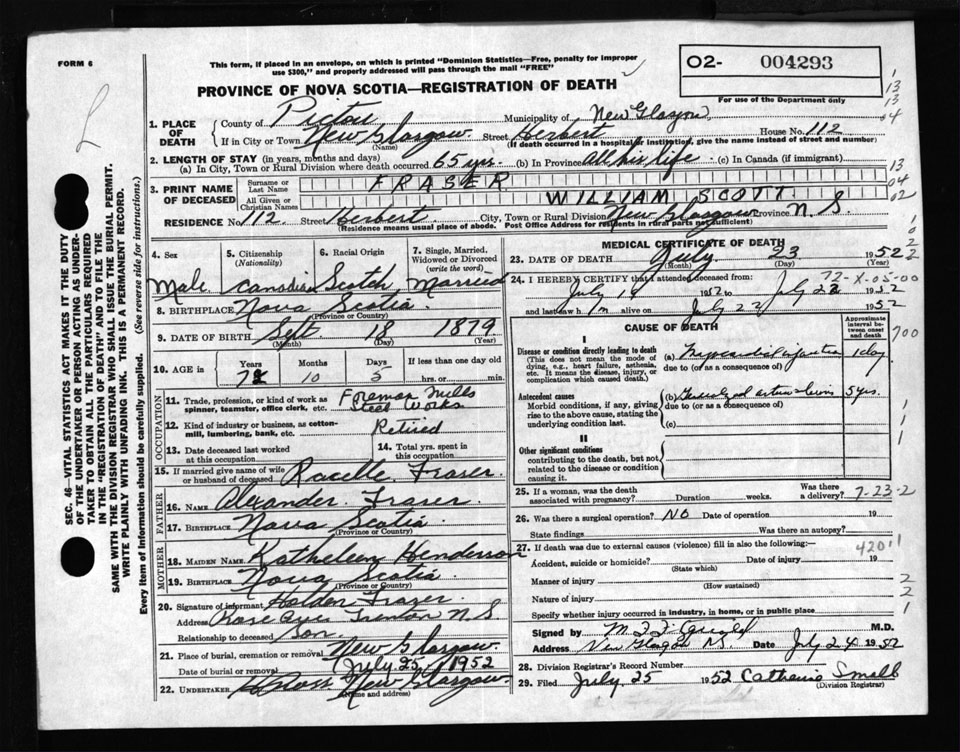 FORM 6
This form, if placed in an envelope, on which is printed "Dominion Statistics—Free, penalty for improper
use $300," and properly addressed will pass through the mail "FREE"
PROVINCE OF NOVA SCOTIA—REGISTRATION OF DEATH
O2- 004293
For use of the Department only
1. PLACE OF DEATH County of Pictou Municipality of New Glasgow
If in City or Town New Glasgow Street Herbert House No. 112
(Name) (If death occurred in a hospital or institution, give the name instead of street and number)
2. LENGTH OF STAY (in years, months and days)
(a) In City, Town or Rural Division where death occurred 65 yrs. (b) In Province All his life (c) In Canada (if immigrant)
3. PRINT NAME OF DECEASED Surname or Last Name FRASER
All Given or Christian Names WILLIAM SCOTT
RESIDENCE No. 112 Street Herbert City, Town or Rural Division New Glasgow Province N.S.
(Residence means usual place of abode. Post Office Address for residents in rural parts not sufficient)
4. Sex Male
5. Citizenship (Nationality) Canadian
6. Racial Origin Scotch
7. Single, Married, Widowed or Divorced (write the word) Married
8. BIRTHPLACE Nova Scotia
(Province or Country)
9. DATE OF BIRTH Sept. 18 1879
(Month) (Day) (Year)
10. AGE in Years Months Days If less than one day old
10 5 hrs. or min.
OCCUPATION
11. Trade, profession, or kind of work as spinner, teamster, office clerk, etc. Foreman Mills
Steel Works
12. Kind of industry or business, as cotton-mill, lumbering, bank, etc. Retired
13. Date deceased last worked at this occupation
14. Total yrs. spent in this occupation
15. If married give name of wife or husband of deceased Fraser
FATHER
16. Name Alexander Fraser
17. Birthplace Nova Scotia
(Province or Country)
MOTHER
18. Maiden Name Katheleen Henderson
19. Birthplace Nova Scotia
(Province or Country)
20. Signature of informant Holden Frazer
Address Trenton N.S.
Relationship to deceased Son
21. Place of burial, cremation or removal New Glasgow
Date of burial or removal July 25, 1952
22. Undertaker New Glasgow
(Name and address)
MEDICAL CERTIFICATE OF DEATH
23. DATE OF DEATH July 23 1952
(Month) (Day) (Year)
24. I HEREBY CERTIFY that I attended deceased from:
July 19 1952 to July 23 1952
and last saw him alive on July 1952
CAUSE OF DEATH
Approximate interval between onset and death
I
Disease or condition directly leading to death (a) Myocardial infarction 1 day
(This does not mean the mode of dying, e.g., heart failure, asthenia, etc. It means the disease, injury, or complication which caused death.)
due to (or as a consequence of)
Antecedent causes (b) 5 yrs.
Morbid conditions, if any, giving rise to the above cause, stating the underlying condition last.
due to (or as a consequence of)
(c)
II
Other significant conditions
contributing to the death, but not related to the disease or condition causing it.
25. If a woman, was the death associated with pregnancy? Duration weeks. Was there a delivery?
7-23-2
26. Was there a surgical operation? NO Date of operation 19
State findings Was there an autopsy?
27. If death was due to external causes (violence) fill in also the following:
420.1
Accident, suicide or homicide? Date of injury 19
(State which)
Manner of injury
(How sustained)
Nature of injury
Specify whether injury occurred in industry, in home, or in public place
Signed by M.D.
Address New Glasgow N.S. Date July 24 1952
28. Division Registrar's Record Number
29. Filed July 25 1952 Catharine Small
(Division Registrar)
SEC. 46—VITAL STATISTICS ACT MAKES IT THE DUTY
OF THE UNDERTAKER OR PERSON ACTING AS UNDER-
TAKER TO OBTAIN ALL THE PARTICULARS REQUIRED
IN THE "REGISTRATION OF DEATH" AND TO FILE THE
SAME WITH THE DIVISION REGISTRAR WHO SHALL ISSUE THE BURIAL PERMIT.
WRITE PLAINLY WITH UNFADING INK. THIS IS A PERMANENT RECORD.
Every item of information should be carefully supplied. (See reverse side for instructions.)